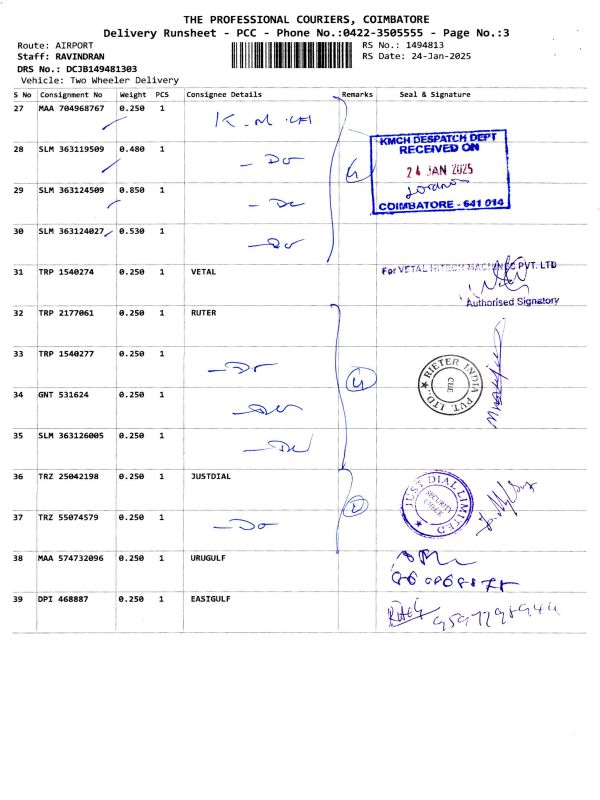 THE PROFESSIONAL COURIERS, COIMBATORE
Delivery Runsheet - PCC - Phone No.:0422-3505555 - Page No.:3
Route: AIRPORT RS No.: 1494813
Staff: RAVINDRAN RS Date: 24-Jan-2025
DRS No.: DCJB149481303
Vehicle: Two Wheeler Delivery
S No Consignment No Weight PCS Consignee Details Remarks Seal & Signature
27 MAA 704968767 0.250 1 K.M.CH
28 SLM 363119509 0.480 1 - Do
KMCH DESPATCH DEPT
RECEIVED ON
24 JAN 2025
COIMBATORE - 641 014
29 SLM 363124509 0.850 1 - Do
4
30 SLM 363124027 0.530 1 - Do
31 TRP 1540274 0.250 1 VETAL
For VETAL HITECH MACHINES PVT. LTD
Authorised Signatory
32 TRP 2177061 0.250 1 RUTER
33 TRP 1540277 0.250 1 - Do
4
RIETER INDIA PVT. LTD.,
CBE
34 GNT 531624 0.250 1 - Do
35 SLM 363126005 0.250 1 - Do
36 TRZ 25042198 0.250 1 JUSTDIAL
2
JUST DIAL LIMITED
SECURITY
37 TRZ 55074579 0.250 1 - Do
38 MAA 574732096 0.250 1 URUGULF
39 DPI 468887 0.250 1 EASIGULF